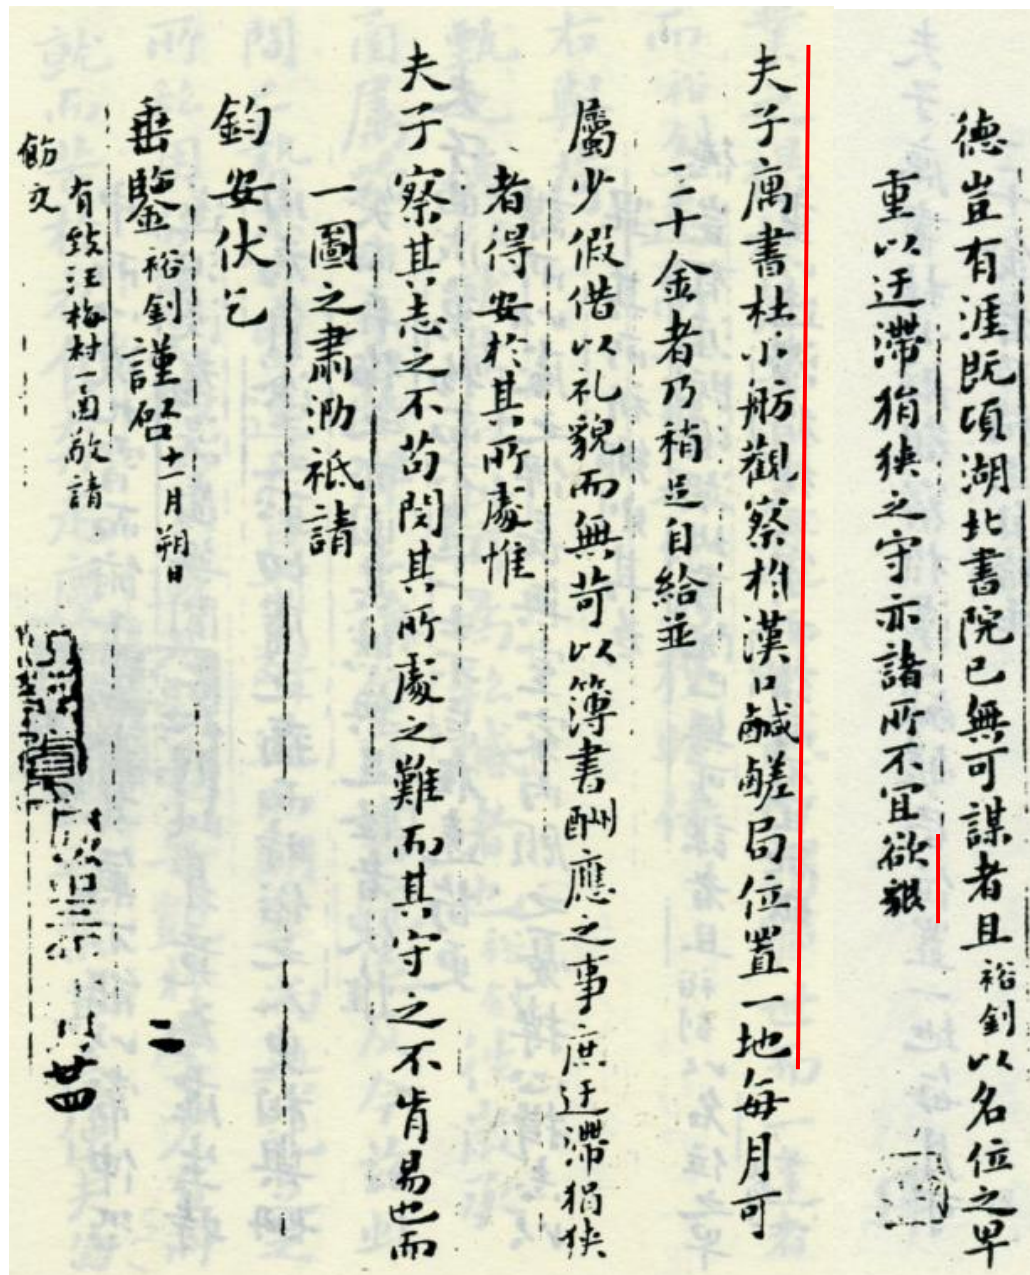 德豈有涯既頃湖北書院已無可謀者且裕釗以名位之卑
重以迂滯狷狹之守亦諸所不宜欲懇
夫子厲書杜小舫觀察於漢口鹹鹺局位置一地每月可
二三十金者乃稍足自給並
屬少假借以礼貌而無苛以簿書酬應之事庶迂滯狷狹
者得安於其所處惟
夫子察其志之不苟閔其所處之難而其守之不肯易也而
一圖之肅泐祗請
鈞安伏乞
垂鑒裕釗謹啓十一月朔日
有致汪梅村一函敬請
飭交
二
廿四